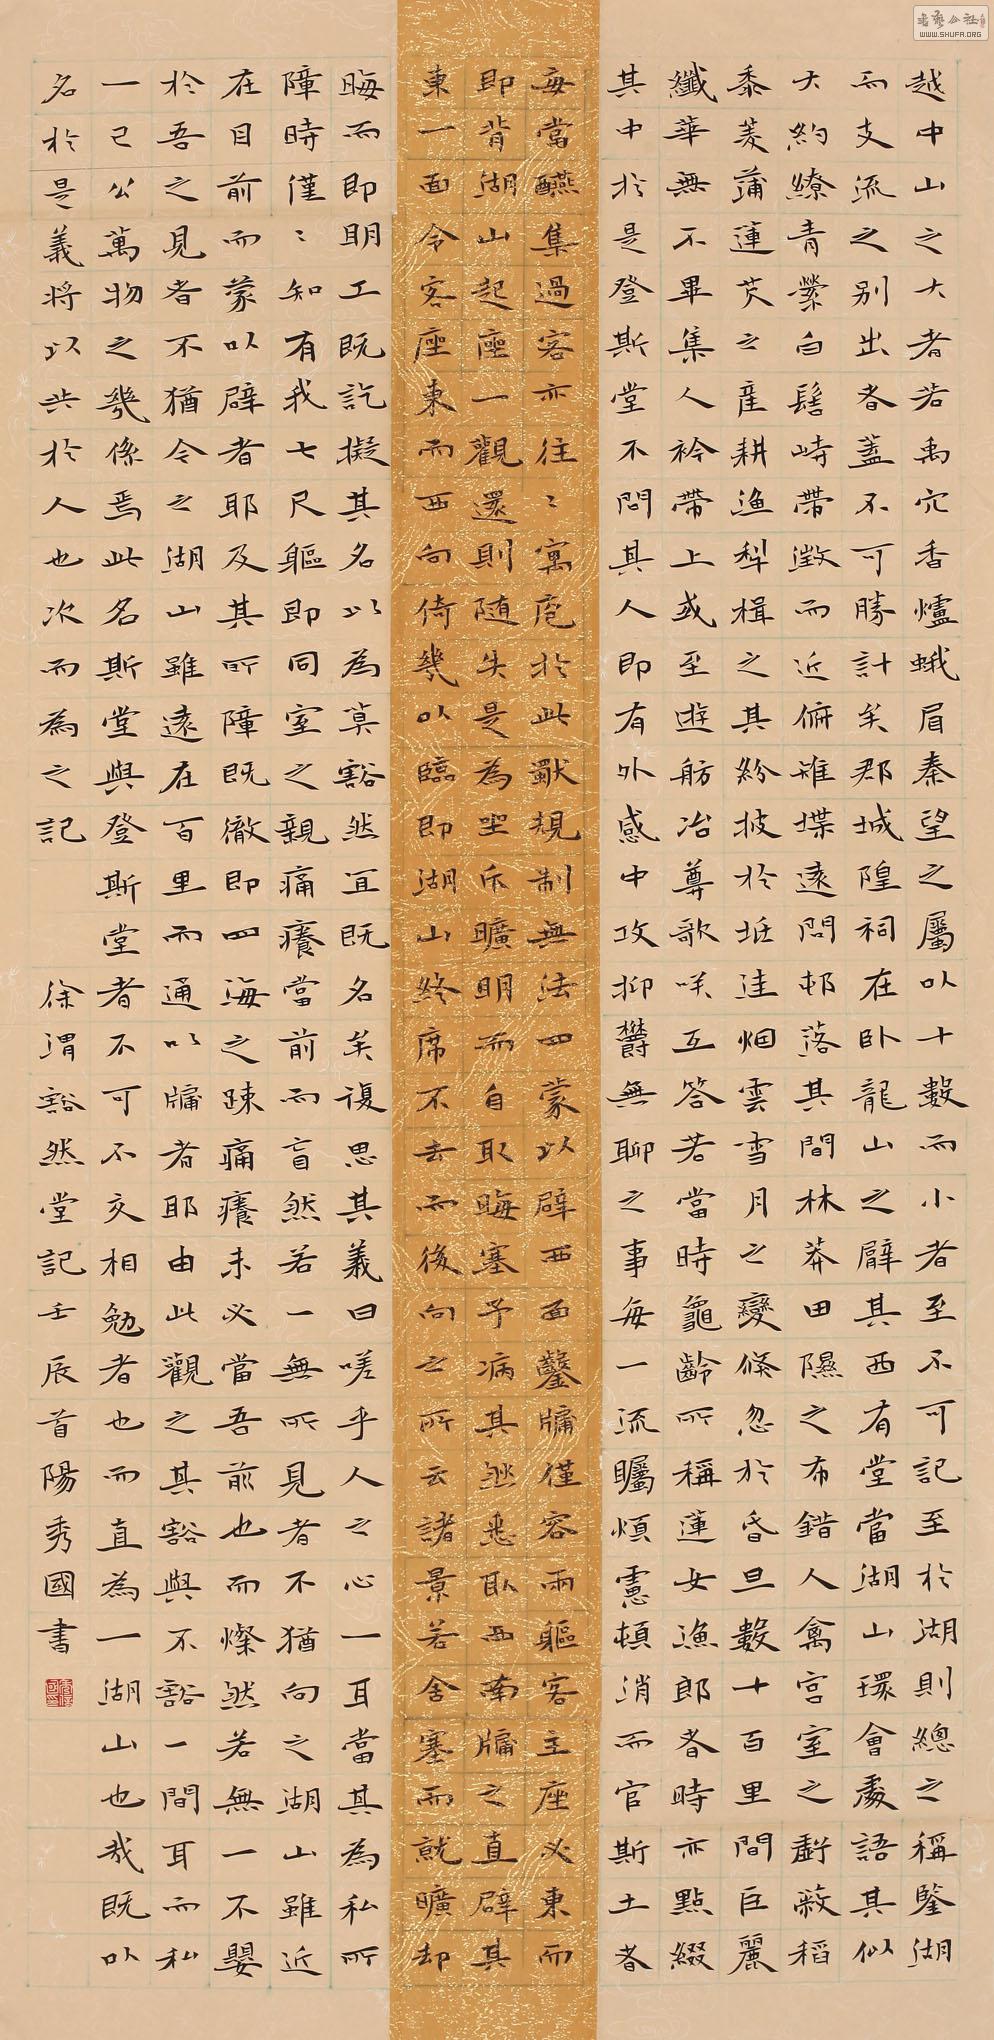 越中山之大者若禹穴香爐蛾眉秦望之屬以十數而小者至不可記至於湖則總之稱鑒湖
而支流之别出者蓋不可勝計矣郡城隍祠在卧龍山之臂其西有堂當湖山環會處語其似
大約繚青縈白髻峙帶澂而近俯雉堞遠問邨落其間林莽田隰之布錯人禽宮室之虧蔽稻
黍菱蒲蓮芡之産耕漁犁楫之其紛披於坻洼烟雲雪月之變倏忽於昏旦數十百里間巨麗
纖華無不畢集人衿帶上或至遊舫冶尊歌咲互答若當時龜齡所稱蓮女漁郎者時亦點綴
其中於是登斯堂不問其人即有外感中攻抑欝無聊之事每一流矚煩慮頓消而官斯土者
每當醼集過客亦往〻寓庖於此獻規制無法四蒙以辟西面鑿牖僅容兩軀客主座必東而
即背湖山起座一觀還則随失是為坐斥曠明而自取晦塞予病其然悉取西南牖之直辟其
東一面令客座東而西向倚幾以臨即湖山終席不去而後向之所云諸景若舍塞而就曠却
晦而即明工既訖擬其名以為莫豁然宜既名矣復思其義曰嗟乎人之心一耳當其為私所
障時僅〻知有我七尺軀即同室之親痛癢當前而盲然若一無所見者不猶向之湖山雖近
在目前而蒙以辟者耶及其所障既徹即四海之疎痛癢未必當吾前也而燦然若無一不嬰
於吾之見者不猶令之湖山雖遠在百里而通以牖者耶由此觀之其豁與不豁一間耳而私
一己公萬物之幾係焉此名斯堂與登斯堂者不可不交相勉者也而直為一湖山也哉既以
名於是義将以共於人也次而為之記 徐渭豁然堂記壬辰首陽秀國書
WWW.SHUFA.ORG